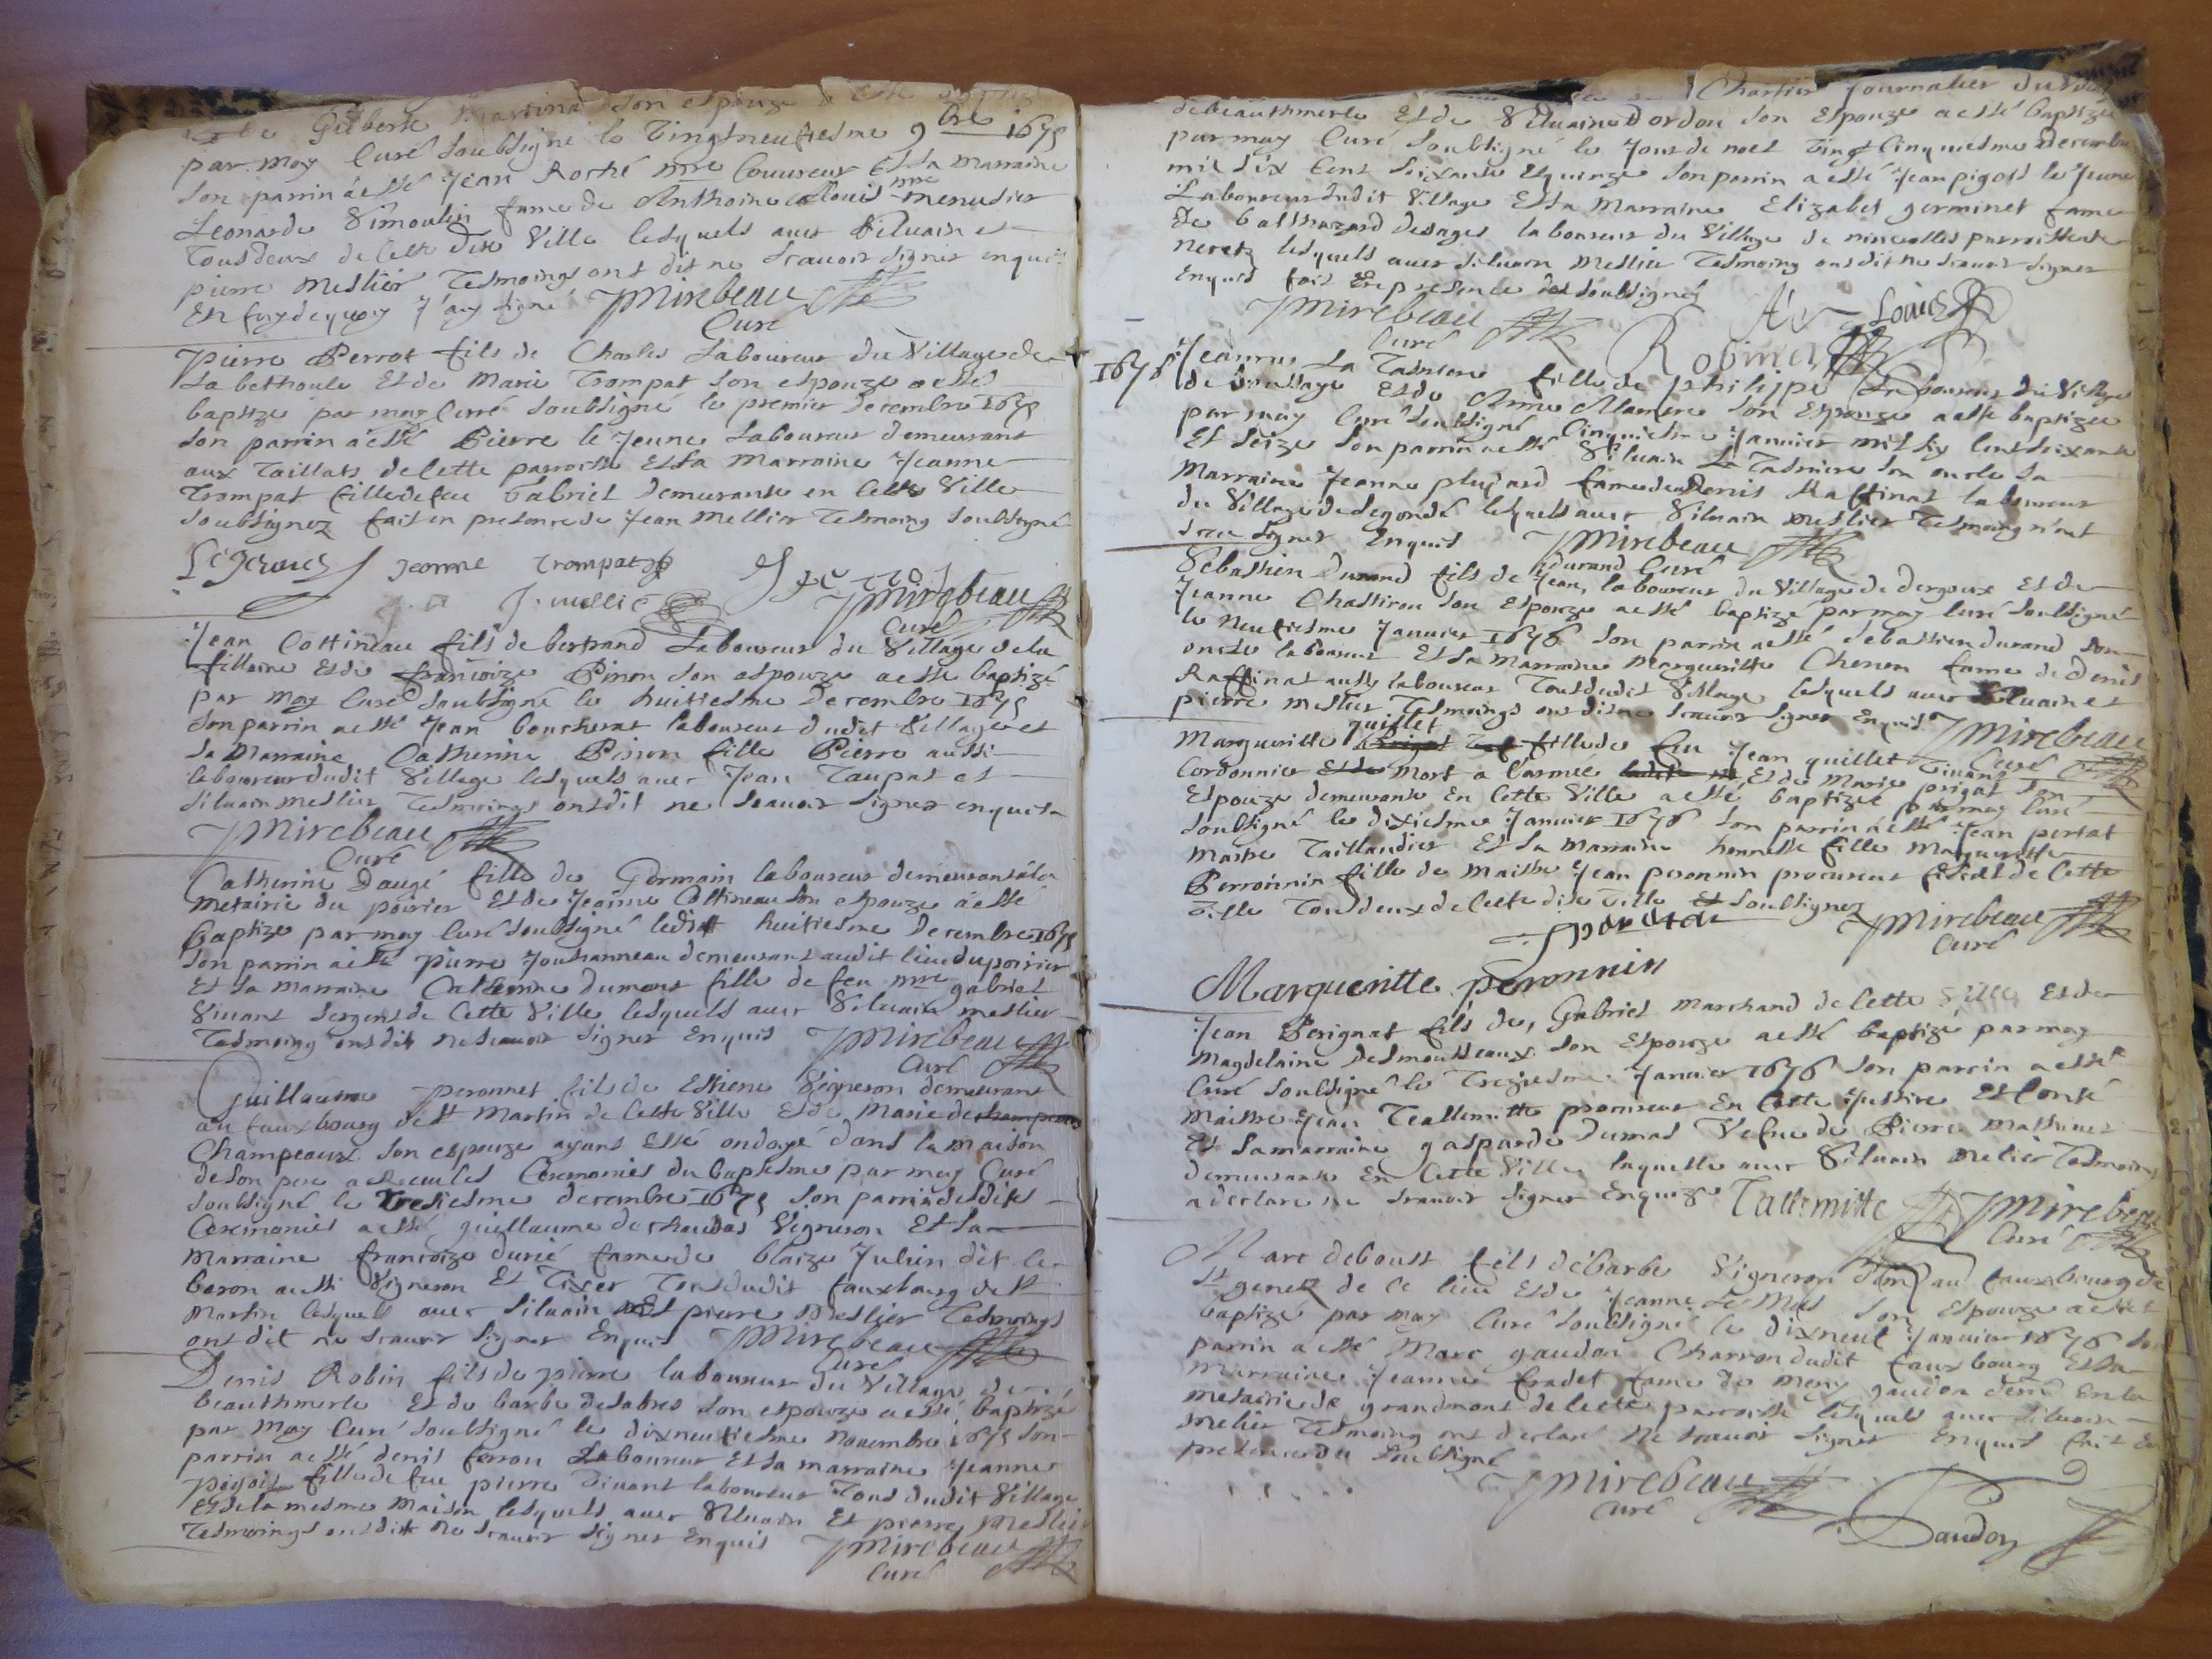 Gilberte son espouze a esté
par moy Curé soubsigné le Vingtneufiesme 9bre 1675
son parrin a esté Jean Roché mre Couureur Et sa marraine
Leonarde Simoulin fame de Anthoine mre menusier
Tous deux de Cette dite Ville lesquels auec Siluain et
pierre Meslier Tesmoings ont dit ne scauoir signer enquis
En foy de quoy J'ay signé Mirebeau
Curé
Pierre Perrot fils de Charles Laboureur du Village de
La bethoule Et de Marie Trompat son espouze a esté
baptizé par moy Curé soubsigné le premier decembre 1675
son parrin a esté Pierre le Jeune Laboureur demeurant
aux Taillats de Cette parroisse Et sa Marraine Jeanne
Trompat fille de feu Gabriel demeurante en Cette Ville
soubsignez fait en presence de Jean Mellier Tesmoing soubsigné
Jeanne Trompat
J. mellie Mirebeau
Curé
Jean Cottineau fils de bertrand Laboureur du Village de la
fillaine Et de francoize Pinon son espouze a esté baptizé
par moy Curé soubsigné le huitiesme Decembre 1675
son parrin a esté Jean boucherat laboureur dudit Village et
sa Marraine Catherine Pinon fille Pierre aussi
laboureur dudit Village lesquels auec Jean Taupat et
siluain meslier Tesmoings ont dit ne scauoir signer enquis
Mirebeau
Curé
Catherine Daugé fille de Germain laboureur demeurant a la
metairie du poirier Et de Jeanne Cottineau son espouze a esté
baptize par moy Curé soubsigné ledit huitiesme Decembre 1675
son parrin a esté pierre Jouhanneau demeurant audit lieu du poirier
Et sa marraine Catherine dumont fille de feu mre gabriel
Viuant sergent de Cette Ville lesquels auec Siluain meslier
Tesmoing ont dit ne scauoir signer Enquis Mirebeau
Curé
Guillaume peronnet fils de Estiene Vigneron demeurant
au fauxbourg de St Martin de Cette Ville Et de Marie de
Champeaux son espouze ayant Esté ondoyé dans la maison
de son pere a receu les Ceremonies du baptesme par moy Curé
soubsigné le Tresiesme decembre 1675 son parrin desdites
Ceremonies a esté guillaume de Vigneron Et sa
Marraine francoize durié fame de blaize Julien dit le
baron aussi Vigneron Et Tixer Tous dudit fauxbourg de St
Martin lesquels auec siluain Et pierre Meslier Tesmoings
ont dit ne scauoir signer Enquis Mirebeau
Curé
Denis Robin fils de pierre laboureur du Village de
beauthmerle Et de barbe desabres son espouze a esté baptizé
par moy Curé soubsigné le dixneufiesme Nouembre 1675 son
parrin a esté denis ferrou Laboureur Et sa marraine Jeanne
pigois fille de feu pierre Viuant laboureur Tous dudit Village
Et de la mesme maison lesquels auec Siluain Et pierre Meslier
Tesmoings ont dit ne scauoir signer Enquis Mirebeau
Curé
Chartier Journalier du Village
de beauthmerle Et de Siluaine Dordon son Espouze a esté baptizé
par moy Curé soubsigné le Jour de noel Vingt Cinquiesme Decembre
mil six Cent soixante Et quinze son parrin a esté Jean pigois le Jeune
Laboureur dudit Village Et sa Marraine Elizabet germinet fame
De balthazard desages laboureur du Village de parroisse de
Neretz lesquels auec siluain Meslier Tesmoing ont dit ne scauoir signer
Enquis fait En presence des soubsignés
Mirebeau
Curé Robinet
1676 Jeanne La Tasniere fille de philippe Laboureur du Village
de Et de Anne son Espouze a esté baptizée
par moy Curé soubsigné Cinquiesme Januier mil six Cent soixante
Et seize son parrin a esté Siluain La Tasniere son oncle sa
Marraine Jeanne plusard fame de Denis Raffinat laboureur
du Village de segondé lesquels auec Siluain Meslier Tesmoing n'ont
sceu signer Enquis Mirebeau
durand Curé
Sebastien Durand fils de Jean, laboureur du Village de dergoux Et de
Jeanne Chastirou son Espouze a esté baptizé par moy Curé soubsigné
le Neufiesme Januier 1676 son parrin a esté sebastien durand son
oncle laboureur Et sa Marraine Margueritte Chenon fame de denis
Raffinat aussy laboureur Tous dudit Village lesquels auec Siluain et
pierre meslier Tesmoings ont dit ne scauoir signer Enquis Mirebeau
guillet Curé
Margueritte fille de feu Jean guillet Viuant
Cordonnier Et de Mort a l'armee Et de Marie prigat son
Espouze demeurante En Cette Ville a esté baptizee par moy Curé
soubsigné le dixiesme Januier 1676 son parrin a esté Jean pertat
Maitre Taillandier Et sa Marraine honneste fille Margueritte
Perronnin fille de Maitre Jean peronnin procureur fiscal de Cette
Ville Tous deux de Cette dite Ville Et soubsignez
Mirebeau
Curé
Margueritte peronnin
Jean Perignat fils de, Gabriel Marchand de Cette Ville Et de
Magdelaine Desmousseaux son Espouze a esté baptizé par moy
Curé soubsigné le Treziesme Januier 1676 son parrin a esté
Maitre Jean Teallemitte procureur En Cette Justice Et Comté
Et sa marraine gasparde dumas Vefue de Pierre Mathiuet
demeurante En Cette Ville laquelle auec Siluain melier Tesmoing
a declaré ne scauoir signer Enquize Tallemitte Mirebeau
Curé
Marc deboust fils de barbe Vigneron au fauxbourg de
St genez de Ce lieu Et de Jeanne Le Mas son Espouze a esté
baptizé par moy Curé soubsigné le dixneuf Januier 1676 son
parrin a esté Marc gaudon Charron dudit faux bourg Et sa
Marraine Jeanne fradet fame de meny gaudon demt En la
metairie de grandmont de Cette parroisse lesquels auec siluain
melier Tesmoing ont declaré Ne scauoir signer Enquis fait En
presence du soubsigné
Mirebeau
Curé
Gaudon